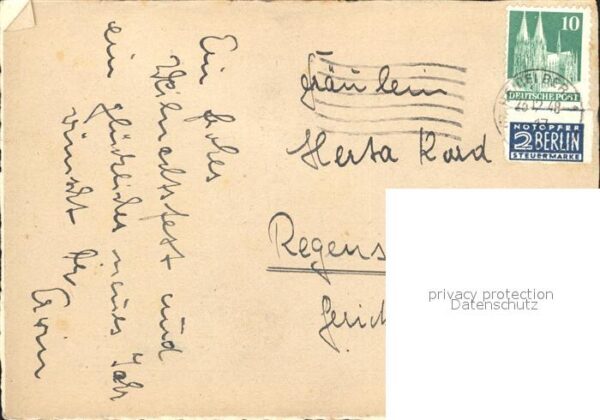 Ein frohes
Weihnachtsfest und
ein glückliches neues Jahr
wünscht Dir
Erwin
Fräulein
Herta
Regens
Geric
10
DEUTSCHE POST
23 12 48
17
NOTOPFER
2 BERLIN
STEUERMARKE
privacy protection
Datenschutz